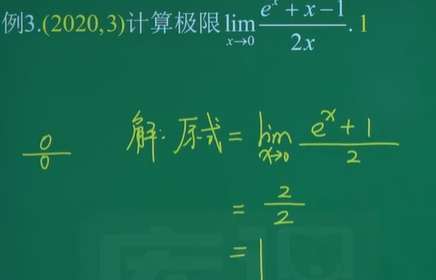 例3.(2020,3)计算极限 lim x→0 (e^x + x − 1)/(2x). 1
0/0 解: 原式 = lim x→0 (e^x + 1)/2
= 2/2
= 1